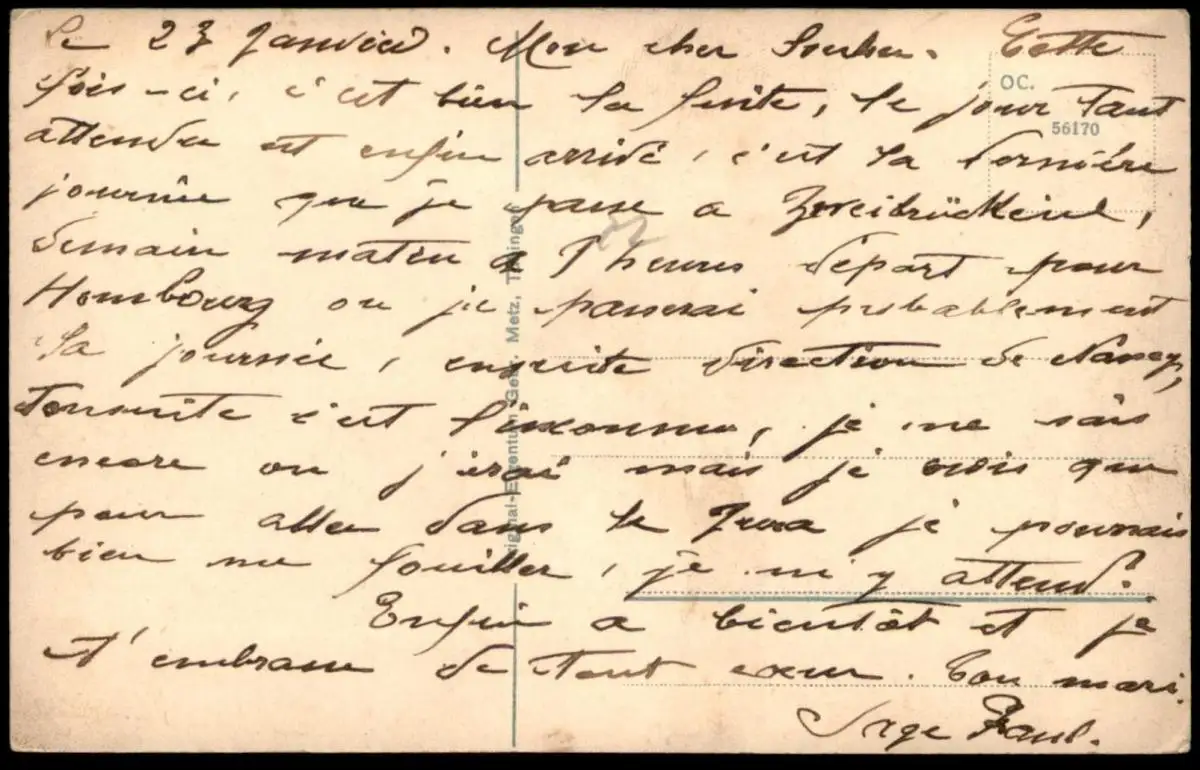 Le 23 Janvier. Mon cher Cette
fois-ci, c'est bien la fuite, le jour tant
attendu est enfin arrivé, c'est la dernière
journée que je passe a
demain matin a 7 heures départ pour
Hombourg ou je passerai probablement
la journée, ensuite direction de Nancy,
ensuite c'est l'inconnu, je ne sais
encore ou j'irai mais je crois que
pour aller dans le Jura je pourrais
bien me fouiller, je m'y attend.
Enfin a bientôt et je
t'embrasse de tout cœur. Ton mari.
Paul.
OC.
56170
Original-Eigentum Metz,